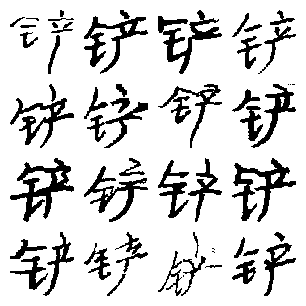 铲铲铲铲
铲铲铲铲
铲铲铲铲
铲铲铲铲